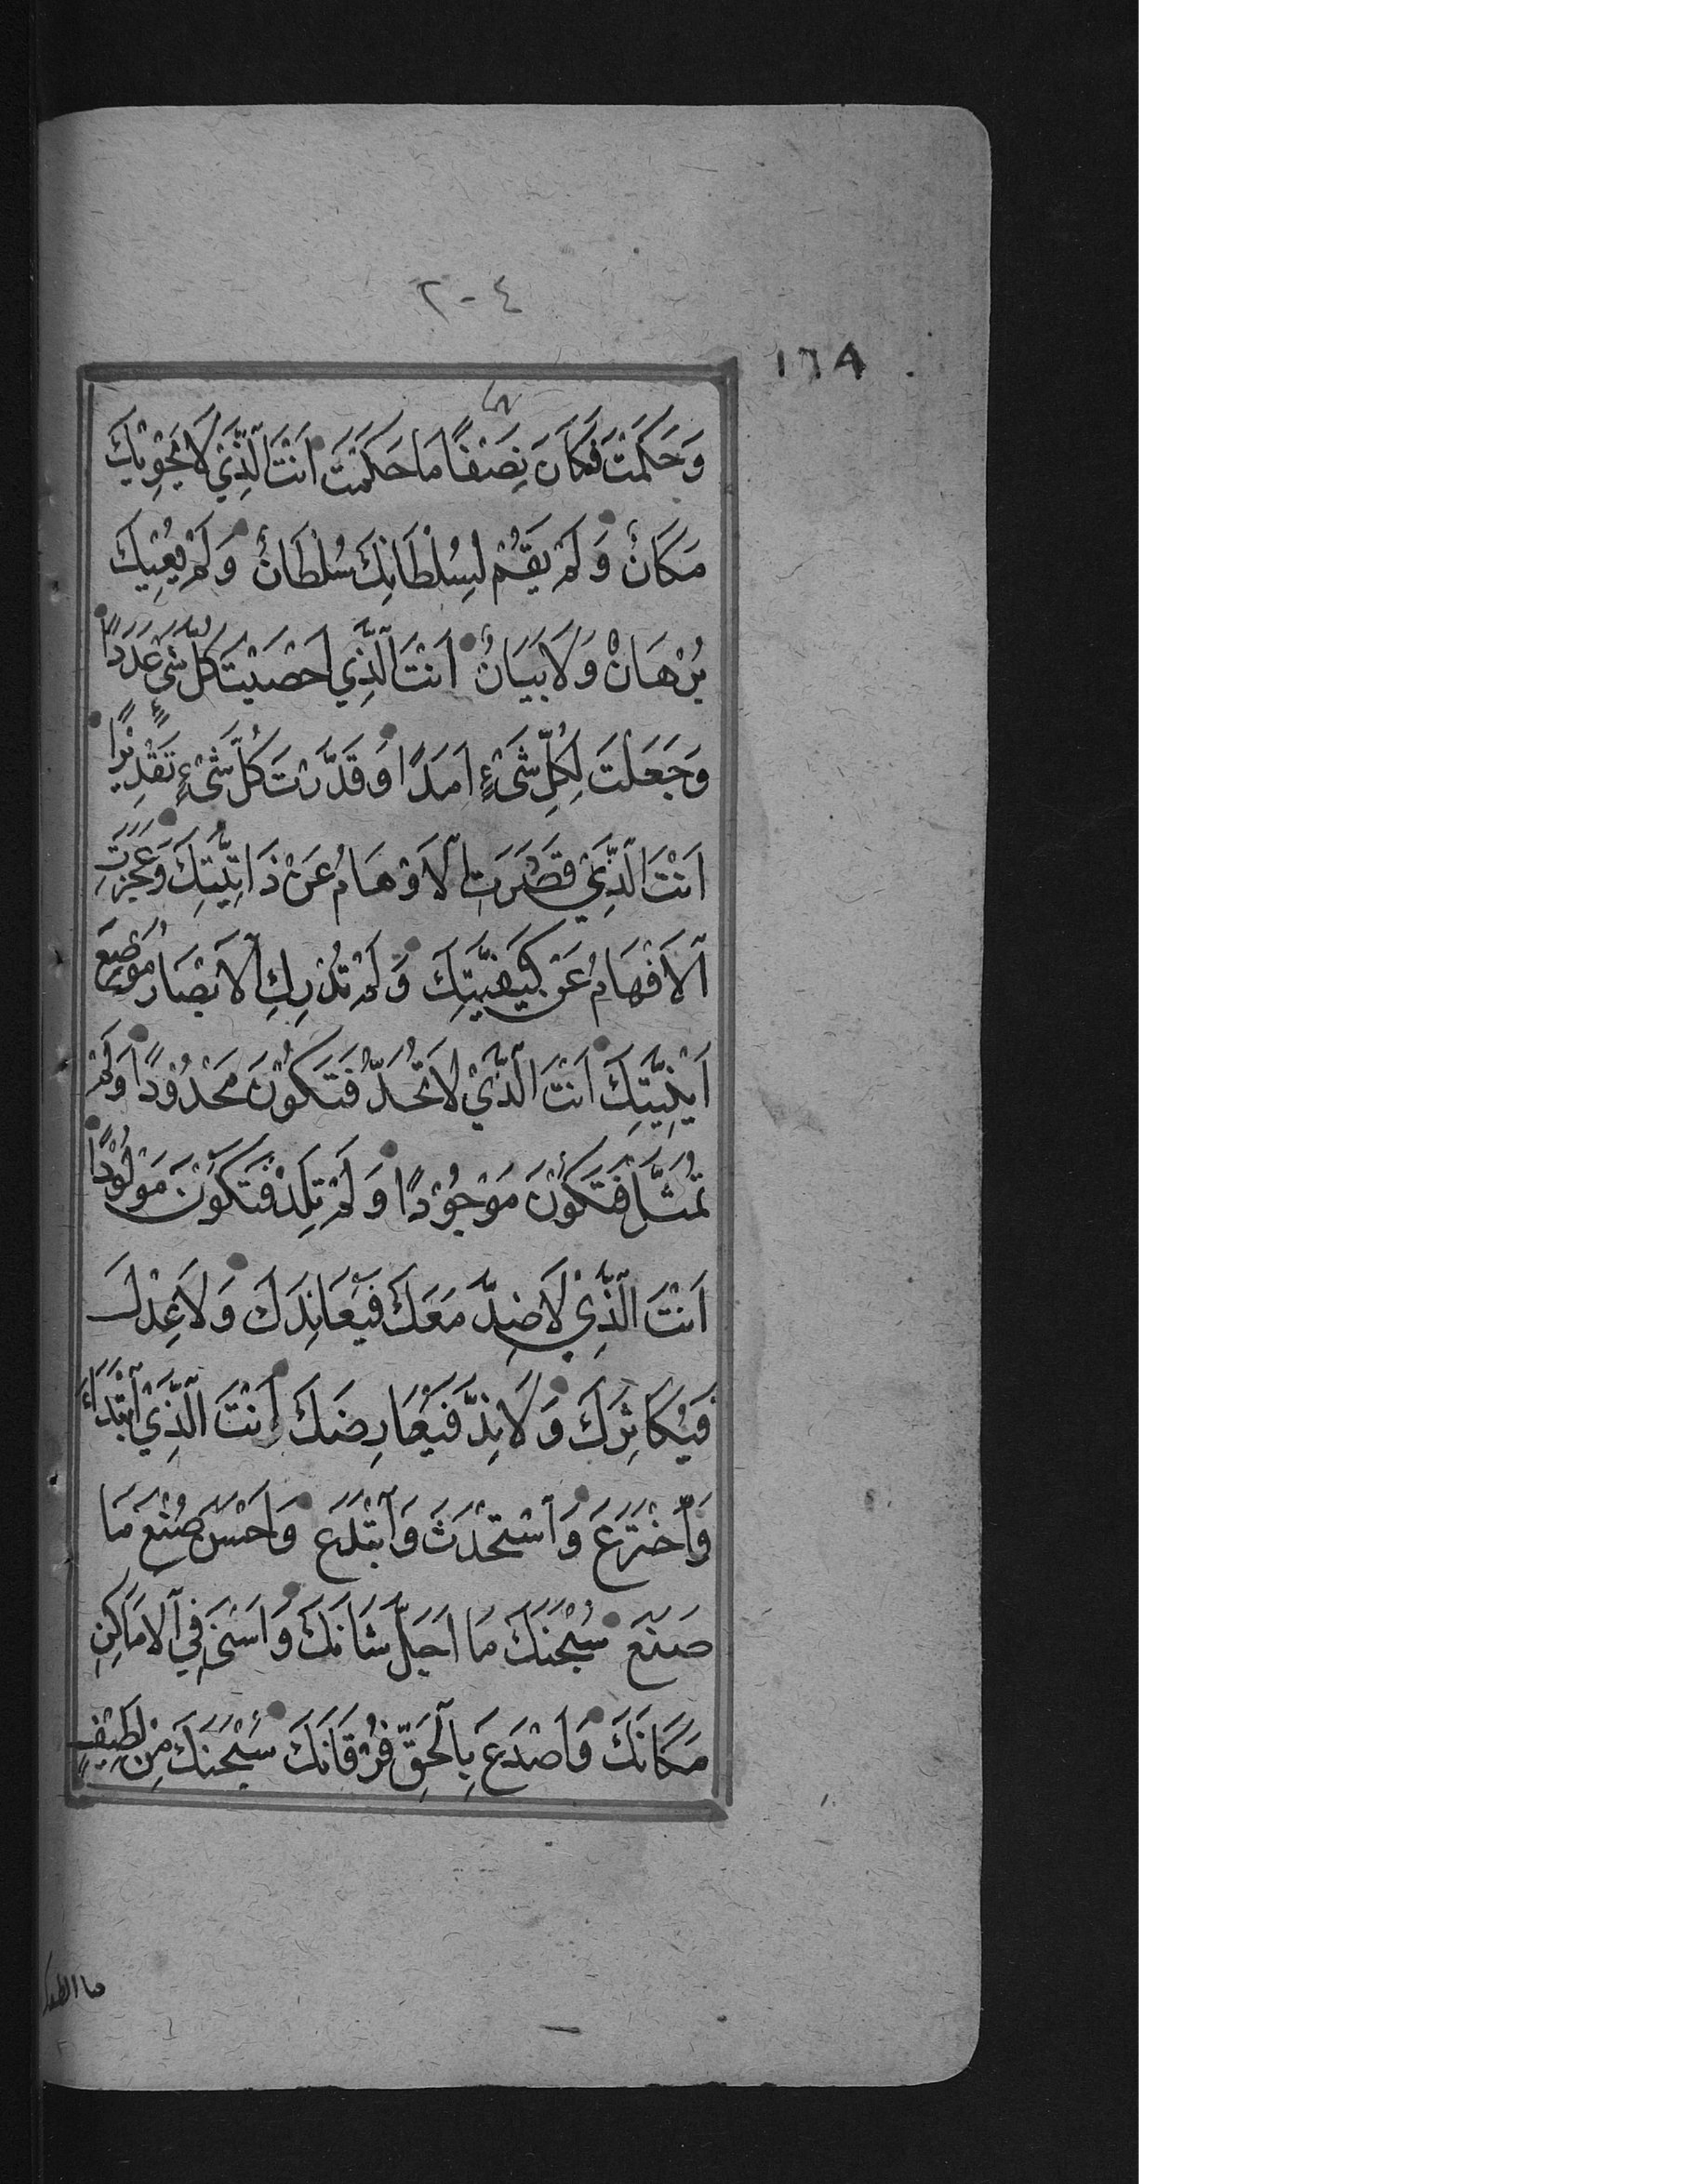 ٢٠٤
١٦٨
وَحَكَمْتَ فَكَانَ نِصَفًا مَا حَكَمْتَ اَنْتَ الَّذِيْ لَا يَحْوِيْكَ
مَكَانٌ وَلَمْ يَقُمْ لِسُلْطَانِكَ سُلْطَانٌ وَلَمْ يُعْيِكَ
بُرْهَانٌ وَلَا بَيَانٌ اَنْتَ الَّذِي اَحْصَيْتَ كُلَّ شَيْءٍ عَدَدًا
وَجَعَلْتَ لِكُلِّ شَيْءٍ اَمَدًا وَقَدَّرْتَ كُلَّ شَيْءٍ تَقْدِيْرًا
اَنْتَ الَّذِيْ قَصُرَتِ الْاَوْهَامُ عَنْ ذَاتِيَّتِكَ وَعَجَزَتِ
الْاَفْهَامُ عَنْ كَيْفِيَّتِكَ وَلَمْ تُدْرِكِ الْاَبْصَارُ مَوْضِعَ
اَيْنِيَّتِكَ اَنْتَ الَّذِيْ لَا تُحَدُّ فَتَكُوْنَ مَحْدُوْدًا وَلَمْ
تُمَثَّلْ فَتَكُوْنَ مَوْجُوْدًا وَلَمْ تَلِدْ فَتَكُوْنَ مَوْلُوْدًا
اَنْتَ الَّذِيْ لَا ضِدَّ مَعَكَ فَيُعَانِدَكَ وَلَا عِدْلَ
فَيُكَاثِرَكَ وَلَا نِدَّ فَيُعَارِضَكَ اَنْتَ الَّذِيْ ابْتَدَاءَ
وَاخْتَرَعَ وَاسْتَحْدَثَ وَابْتَدَعَ وَاَحْسَنَ صُنْعَ مَا
صَنَعَ سُبْحَنَكَ مَا اَجَلَّ شَانَكَ وَاَسْنَى فِي الْاَمَاكِنِ
مَكَانَكَ وَاَصْدَعَ بِالْحَقِّ فُرْقَانَكَ سُبْحَنَكَ مِنْ لَطِيْفٍ
ما الطفك